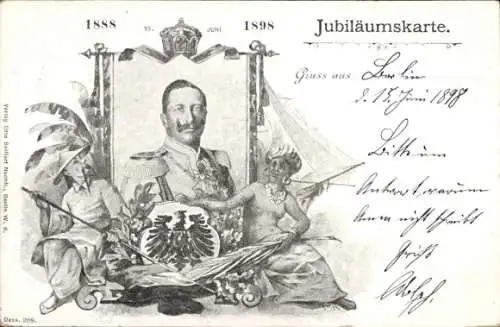 1888 15. JUNI 1898
Jubiläumskarte.
Gruss aus Berlin
d. 15. Juni 1898
Bitte um
Antwort, warum
Anna nicht schreibt
Grüßt
Adolf.
Verlag Otto Seiffert Nachfl., Berlin W. 9.
Dess. 298.